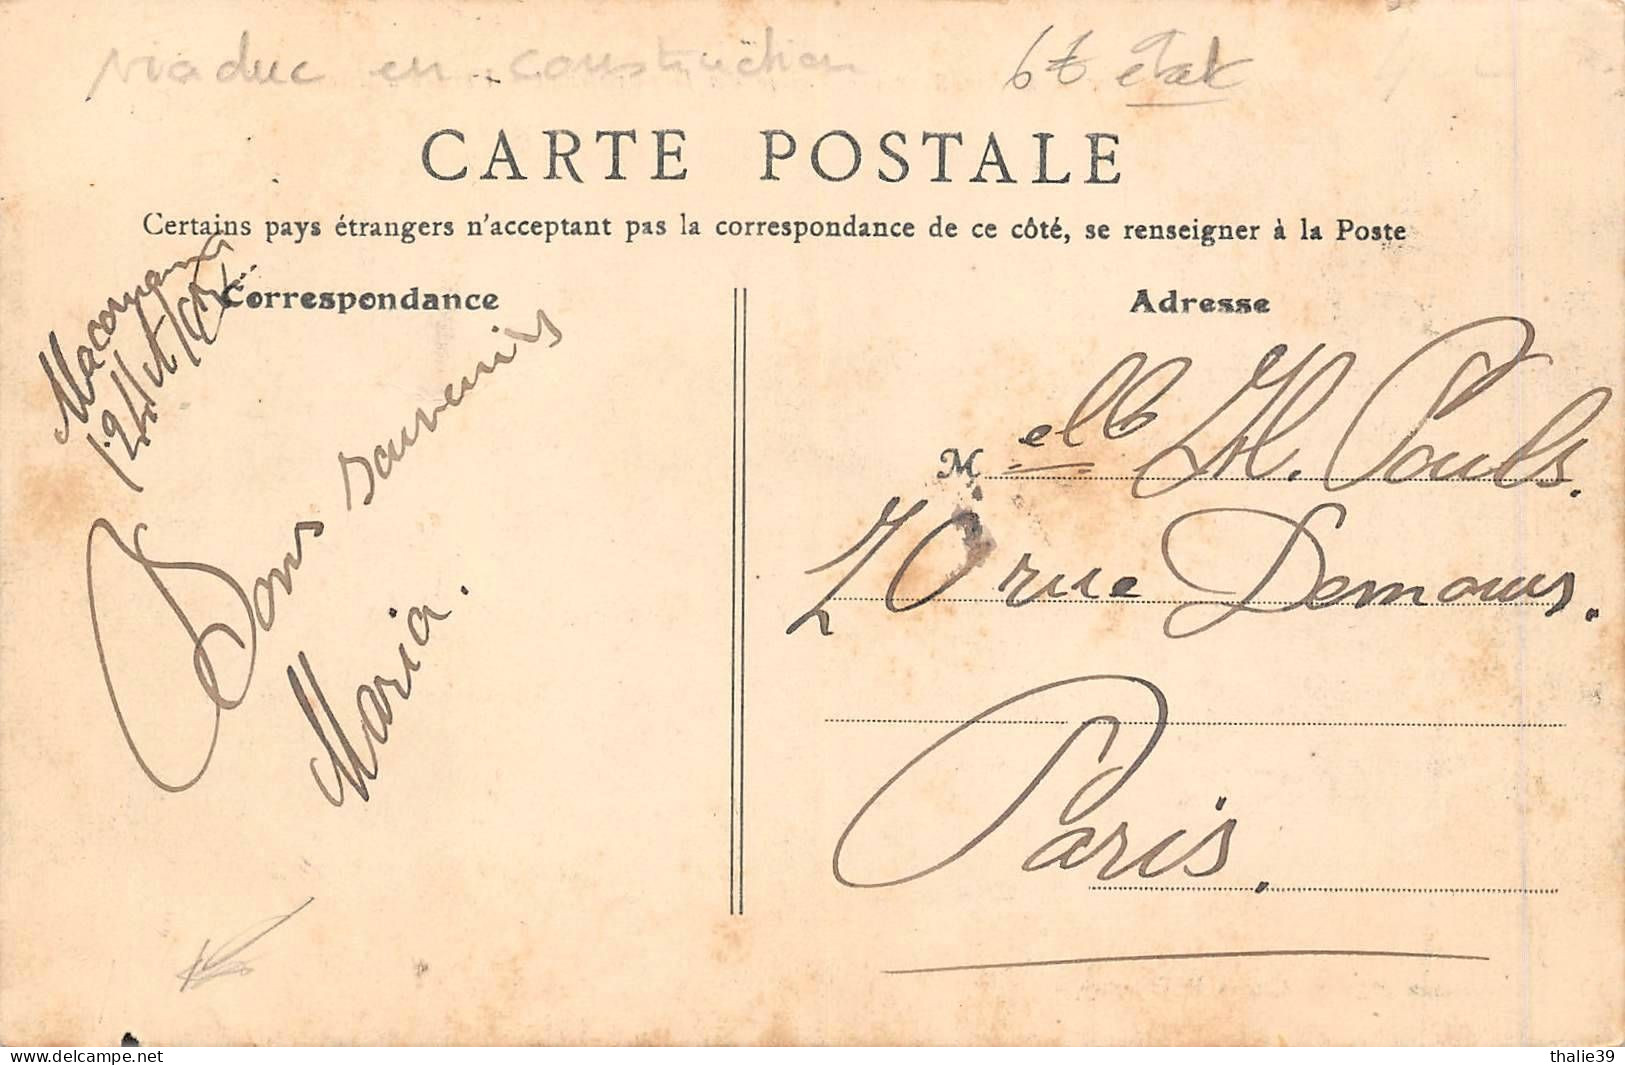 viaduc en construction 6€ état
CARTE POSTALE
Certains pays étrangers n'acceptant pas la correspondance de ce côté, se renseigner à la Poste
Correspondance
Macornay
Bons souvenirs
Maria.
Adresse
M elle H. Pouls.
20 rue Demours.
Paris.
thalie39